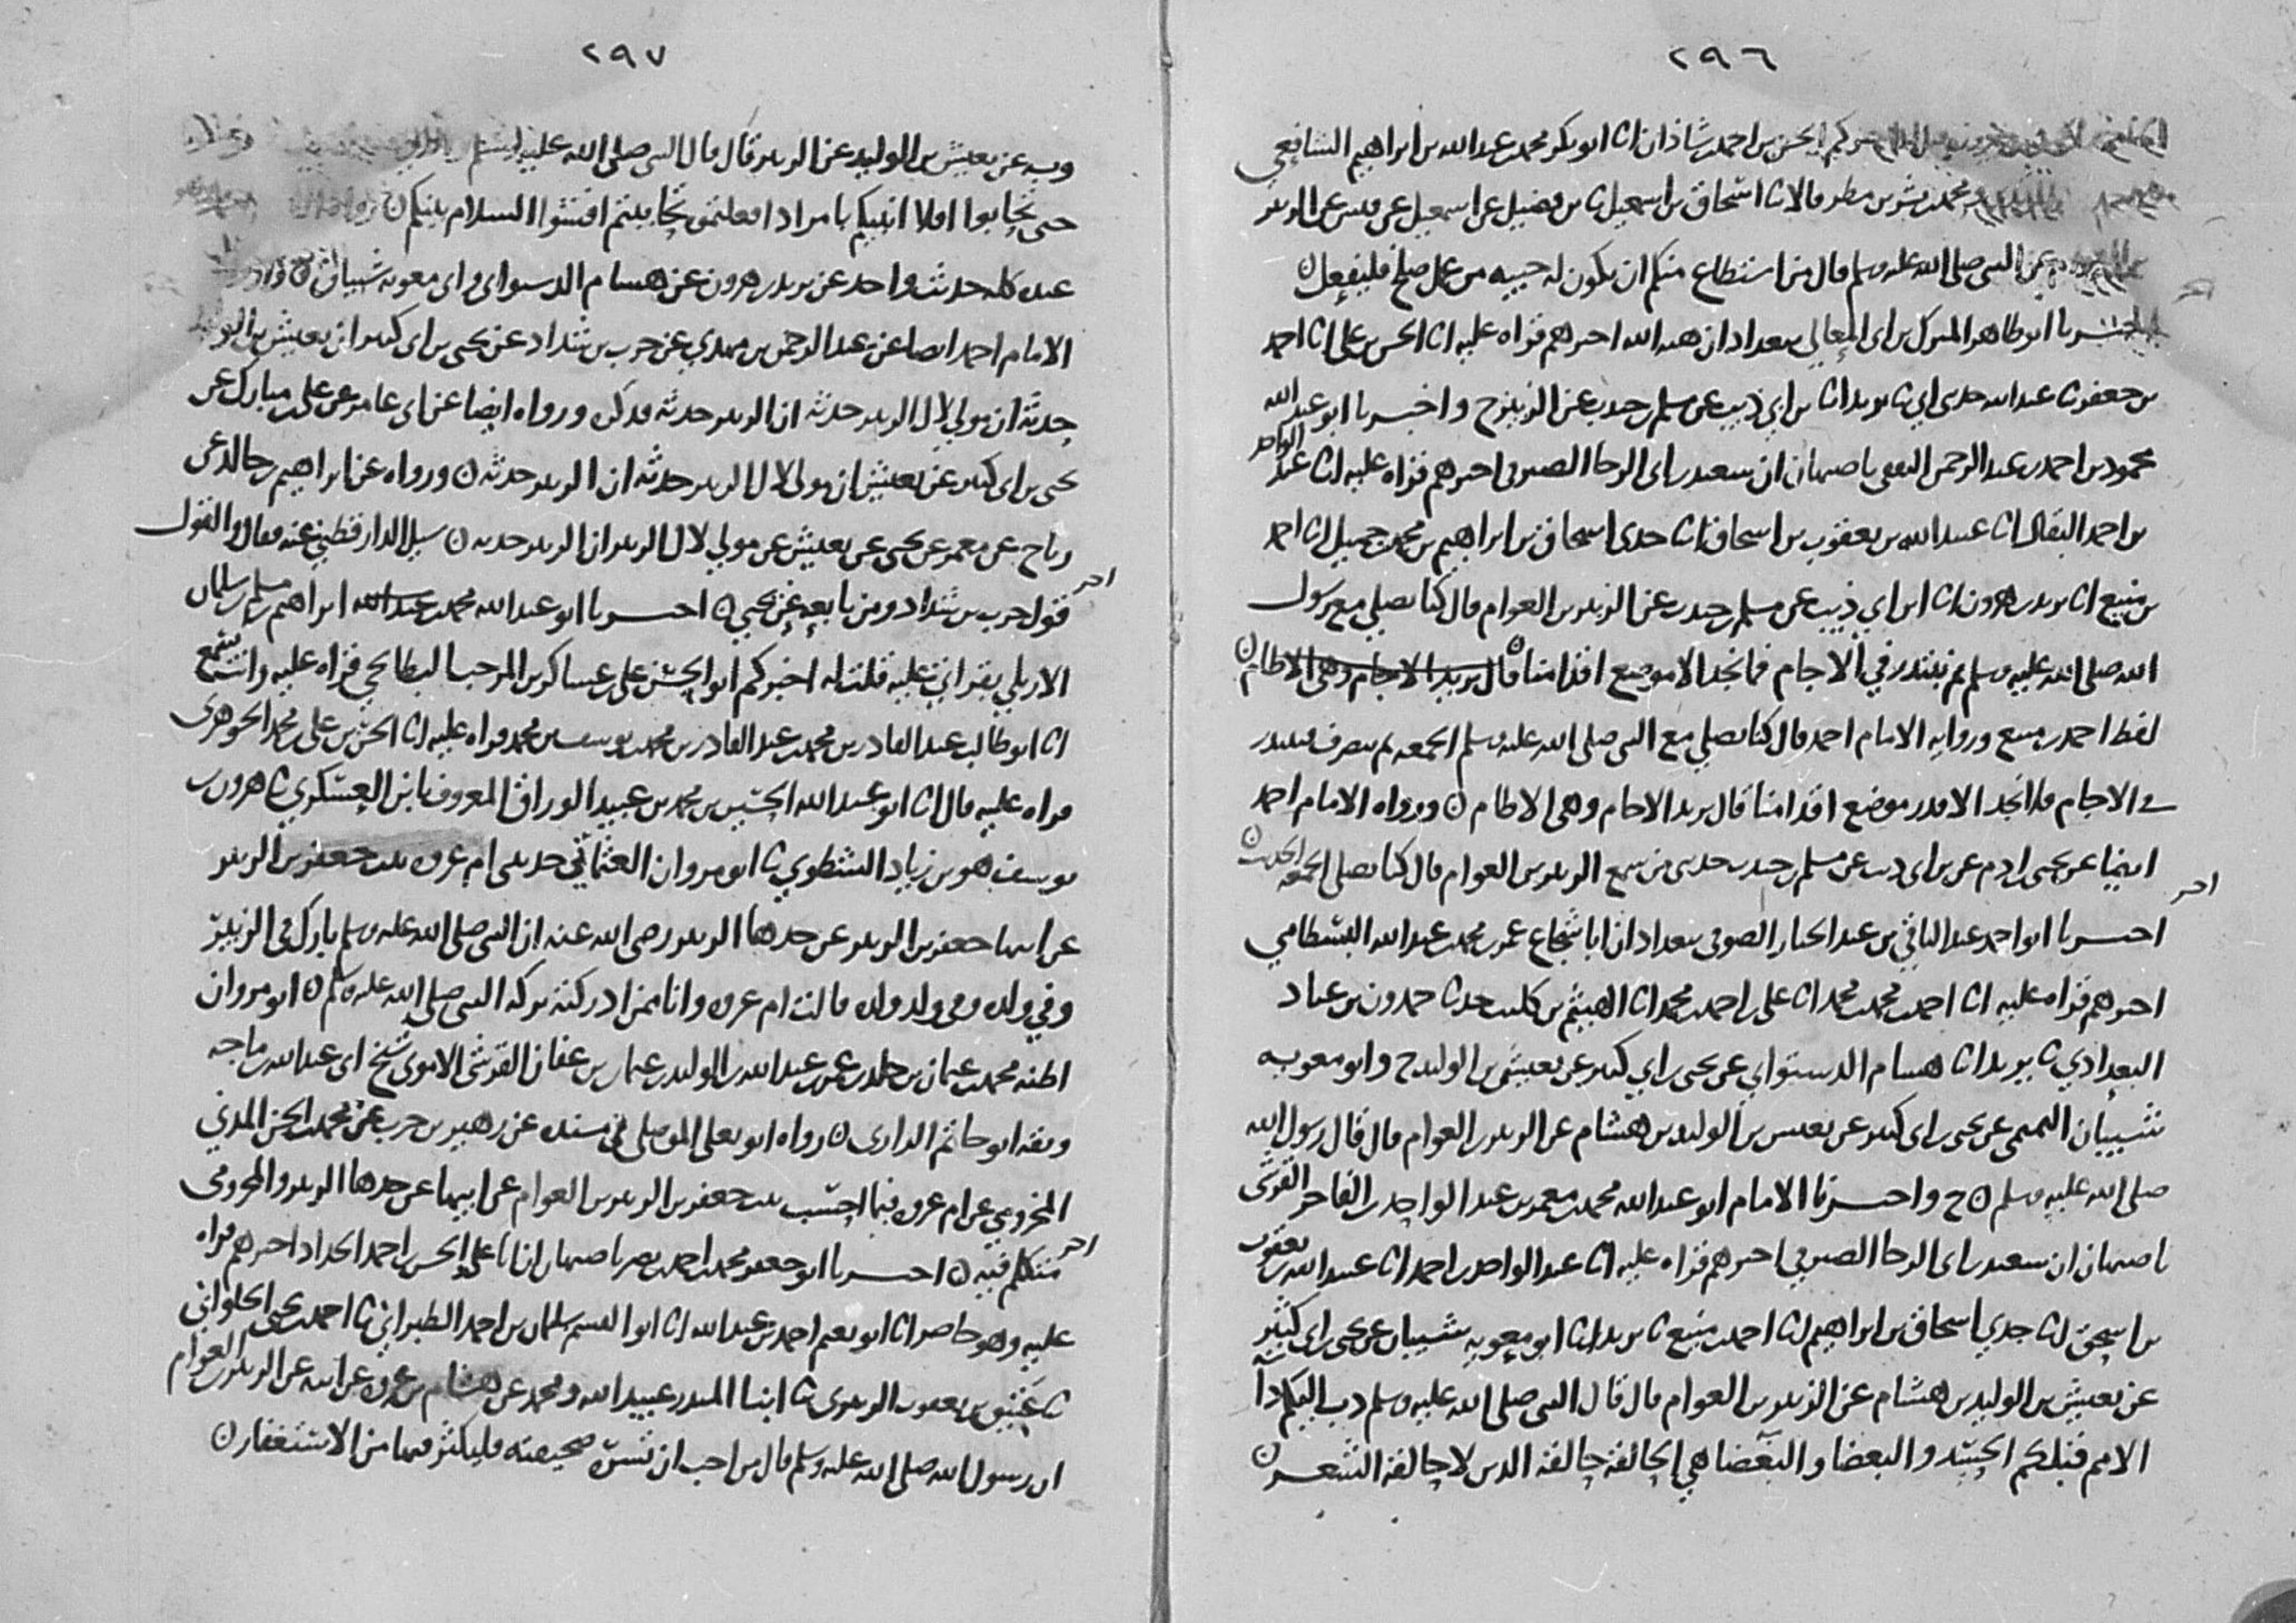 ٢٩٦
اخبركم الحسن بن احمد بن شاذان انا ابو بكر محمد بن عبد الله بن ابراهيم الشافعي
ومحمد بن بشر بن مطر قالا نا اسحاق بن اسمعيل نا بن فضيل عن اسمعيل عن قيس عن الزبير
عن النبي صلى الله عليه وسلم قال من استطاع منكم ان يكون له خبيه من عمل صالح فليفعل
اخبرنا ابو طاهر المبرك بن ابي المعالي ببغداد ان هبة الله اخبرهم قراه عليه انا الحسن بن علي انا احمد
بن جعفر نا عبد الله حدثني ابي نا يزيد انا بن ابي ذيب عن مسلم بن جندب عن الزبير ح واخبرنا ابو عبد الله
محمود بن احمد بن عبد الرحمن الثقفي باصبهان ان سعيد بن ابي الرجا الصيرفي اخبرهم قراه عليه انا عبد الواحد
بن احمد البقال انا عبيد الله بن يعقوب بن اسحاق انا جدي اسحاق بن ابراهيم بن محمد بن جميل انا احمد
بن منيع انا يزيد بن هرون انا ابن ابي ذيب عن مسلم بن جندب عن الزبير بن العوام قال كنا نصلي مع رسول
الله صلى الله عليه وسلم ثم نبتدر في الاجام فما نجد الا موضع اقدامنا قال يزيد الاجام وهي الاطام
لفظ احمد بن منيع ورواية الامام احمد قال كنا نصلي مع النبي صلى الله عليه وسلم الجمعه ثم ننصرف فنبتدر
في الاجام فلا نجد الا قدر موضع اقدامنا قال يزيد الاجام وهي الاطام ورواه الامام احمد
ايضا عن يحيى بن ادم عن بن ابي ذيب عن مسلم بن جندب حدثني من سمع الزبير بن العوام قال كنا نصلي الجمعه الحديث
اخر
اخبرنا ابو احمد عبد الباقي بن عبد الجبار الصوفي ببغداد ان ابا شجاع عمر بن محمد بن عبد الله البسطامي
اخبرهم قراه عليه انا احمد بن محمد بن محمد انا علي بن احمد بن محمد انا الهيثم بن كليب حدثنا حمدون بن عباد
البغدادي نا يزيد انا هشام الدستوائي عن يحيى بن ابي كثير عن يعيش بن الوليد ح وابو معويه
شيبان التميمي عن يحيى بن ابي كثير عن يعيش بن الوليد بن هشام عن الزبير بن العوام قال قال رسول الله
صلى الله عليه وسلم ح واخبرنا الامام ابو عبد الله محمد بن معمر بن عبد الواحد بن الفاخر القرشي
باصبهان ان سعيد بن ابي الرجا الصيرفي اخبرهم قراه عليه انا عبد الواحد بن احمد انا عبيد الله بن يعقوب
بن اسحق انا جدي اسحاق بن ابراهيم انا احمد بن منيع نا يزيد انا ابو معويه شيبان عن يحيى بن ابي كثير
عن يعيش بن الوليد بن هشام عن الزبير بن العوام قال قال النبي صلى الله عليه وسلم دب اليكم دآ
الامم قبلكم الحسد والبغضا والبغضا هي الحالقه حالقة الدين لا حالقة الشعر
٢٩٧
وبه عن يعيش بن الوليد عن الزبير قال قال النبي صلى الله عليه وسلم
حتى تحابوا افلا انبيكم بامر اذا فعلتموه تحاببتم افشوا السلام بينكم
عنده كله حديث واحد عن يزيد بن هرون عن هشام الدستوائي وابي معويه شيبان
الامام احمد ايضا عن عبد الرحمن بن مهدي عن حرب بن شداد عن يحيى بن ابي كثير ان يعيش بن الوليد
حدثه ان مولى لال الزبير حدثه ان الزبير حدثه فذكره ورواه ايضا عن ابي عامر عن علي بن مبارك عن
يحيى بن ابي كثير عن يعيش ان مولى لال الزبير حدثه ان الزبير حدثه ورواه عن ابراهيم بن خالد عن
رباح عن معمر عن يحيى عن يعيش عن مولى لال الزبير ان الزبير حدثه سيل الدارقطني عنه فقال والقول
اخر
قول حرب بن شداد ومن تابعه عن يحيى اخبرنا ابو عبد الله محمد بن عبد الله ابراهيم بن مسلم بن سلمان
الاربلي بقراتي عليه قلت له اخبركم ابو الحسن علي بن عساكر بن المرحب البطايحي قراه عليه وانت تسمع
انا ابو طالب عبد القادر بن محمد بن عبد القادر بن محمد بن يوسف بن محمد قراه عليه انا الحسن بن علي بن محمد الجوهري
قراه عليه قال انا ابو عبد الله الحسين بن محمد بن عبيد الوراق المعروف بابن العسكري نا هرون بن
يوسف هو بن زياد الشطوي نا ابو مروان العثماني حدثتني ام عروه بنت جعفر بن الزبير
عن ابيها جعفر بن الزبير عن جدها الزبير رضي الله عنه ان النبي صلى الله عليه وسلم بارك في الزبير
وفي ولده وفي ولد ولده قالت ام عروه وانا ممن ادركته بركه النبي صلى الله عليه وسلم ابو مروان
اظنه محمد بن عثمان بن خالد بن عمر بن عبد الله بن الوليد بن عثمان بن عفان القرشي الاموي شيخ ابي عبد الله بن ماجه
وثقه ابو حاتم الرازي رواه ابو يعلى الموصلي في مسنده عن زهير بن حرب عن محمد بن الحسن المدني
المخزومي عن ام عروه فيما احسب بنت جعفر بن الزبير بن العوام عن ابيها عن جدها الزبير والمخزومي
اخر
متكلم فيه اخبرنا ابو جعفر محمد بن احمد بن نصر باصبهان ان ابا علي الحسن بن احمد الحداد اخبرهم قراه
عليه وهو حاضر انا ابو نعيم احمد بن عبد الله انا ابو القسم سلمان بن احمد الطبراني نا احمد بن يحيى الحلواني
نا عتيق بن يعقوب الزبيري نا ابنا المنذر عبيد الله ومحمد عن هشام بن عروه عن ابيه عن الزبير بن العوام
ان رسول الله صلى الله عليه وسلم قال من احب ان تسره صحيفته فليكثر فيها من الاستغفار